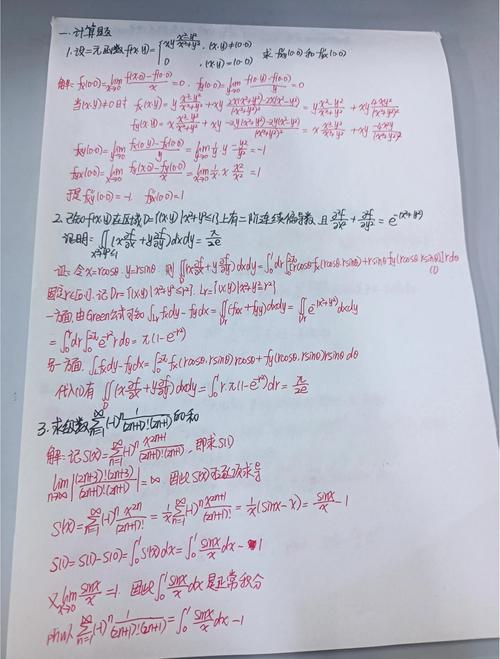 一. 计算题
1. 设二元函数 f(x,y) = { xy (x²-y²)/(x²+y²), (x,y)≠(0,0)
0, (x,y)=(0,0) 求 f''xy(0,0) 和 f''yx(0,0)
解: fx(0,0) = lim x→0 (f(x,0)-f(0,0))/x = 0, fy(0,0) = lim y→0 (f(0,y)-f(0,0))/y = 0
当(x,y)≠0时 fx(x,y) = y (x²-y²)/(x²+y²) + xy (2x(x²+y²)-2x(x²-y²))/(x²+y²)² = y (x²-y²)/(x²+y²) + xy 4xy²/(x²+y²)²
fy(x,y) = x (x²-y²)/(x²+y²) + xy (-2y(x²+y²)-2y(x²-y²))/(x²+y²)² = x (x²-y²)/(x²+y²) + xy (-4x²y)/(x²+y²)²
fxy(0,0) = lim y→0 (fx(0,y)-fx(0,0))/y = lim y→0 1/y · y · (-y²)/y² = -1
fyx(0,0) = lim x→0 (fy(x,0)-fy(0,0))/x = lim x→0 1/x · x · x²/x² = 1
于是 f''xy(0,0) = -1. f''yx(0,0) = 1
2. 已知 f(x,y) 在区域 D={(x,y)|x²+y²≤1} 上有二阶连续偏导数, 且 ∂²f/∂x² + ∂²f/∂y² = e^-(x²+y²)
证明: ∬ x²+y²≤1 (x ∂f/∂x + y ∂f/∂y) dxdy = π/2e
证: 令 x=rcosθ, y=rsinθ. 则 ∬ (x ∂f/∂x + y ∂f/∂y) dxdy = ∫₀¹ dr ∫₀^2π [rcosθ fx(rcosθ, rsinθ) + rsinθ fy(rcosθ, rsinθ)] r dθ (1)
固定 r∈[0,1]. 记 Dr={(x,y)|x²+y²≤r²}. Lr={(x,y)|x²+y²=r²}
一方面, 由 Green 公式可知 ∫Lr fx dy - fy dx = ∬Dr (fxx+fyy) dxdy = ∬Dr e^-(x²+y²) dxdy
= ∫₀^r dr ∫₀^2π e^-r² r dθ = π(1-e^-r²)
另一方面. ∫Lr fx dy - fy dx = ∫₀^2π fx(rcosθ, rsinθ) rcosθ + fy(rcosθ, rsinθ) rsinθ dθ
代入(1)有 ∬D (x ∂f/∂x + y ∂f/∂y) dxdy = ∫₀¹ r·π(1-e^-r²) dr = π/2e
3. 求级数 ∑ n=1 ∞ (-1)^n 1/((2n+1)!(2n+1)) 的和
解: 记 S(x) = ∑ n=1 ∞ (-1)^n x^(2n+1)/((2n+1)!(2n+1)), 即求 S(1)
lim n→∞ |(2n+3)!(2n+3)/((2n+1)!(2n+1))| = ∞ 因此 S(x) 可逐项求导
S'(x) = ∑ n=1 ∞ (-1)^n x^2n/(2n+1)! = 1/x ∑ n=1 ∞ (-1)^n x^(2n+1)/(2n+1)! = 1/x (sinx-x) = sinx/x - 1
S(1) = S(1)-S(0) = ∫₀¹ S'(x) dx = ∫₀¹ sinx/x dx - 1
又 lim x→0 sinx/x = 1. 因此 ∫₀¹ sinx/x dx 是正常积分
所以 ∑ n=1 ∞ (-1)^n 1/((2n+1)!(2n+1)) = ∫₀¹ sinx/x dx - 1